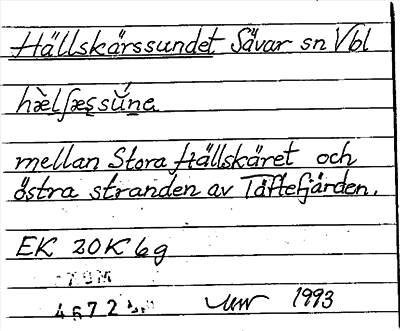 Hällskärssundet Sävar sn Vbl
hæ̀lʃæṣsúna
mellan Stora Hällskäret och
östra stranden av Täftefjärden.
EK 20K 6g
1993